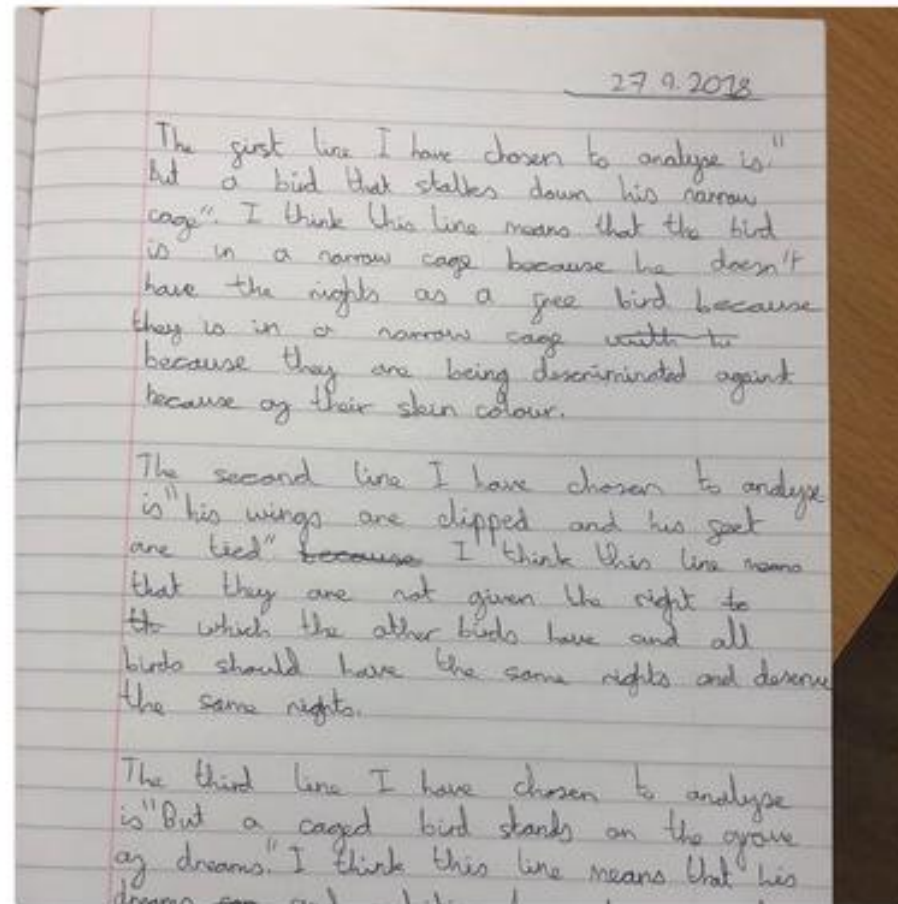 27.9.2018
The first line I have chosen to analyse is "
but a bird that stalks down his narrow
cage". I think this line means that the bird
is in a narrow cage because he doesn't
have the rights as a free bird because
they is in a narrow cage
because they are being descriminated against
because of their skin colour.
The second line I have chosen to analyse
is "his wings are clipped and his feet
are tied" because I think this line means
that they are not given the right to
which the other birds have and all
birds should have the same rights and deserve
the same rights.
The third line I have chosen to analyse
is "But a caged bird stands on the grave
of dreams." I think this line means that his
dreams